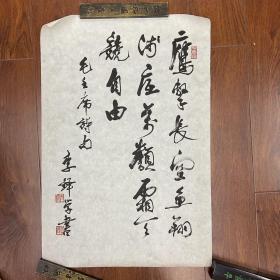 鹰击长空鱼翔
浅底万类霜天
竞自由
毛主席诗句
季婦学书